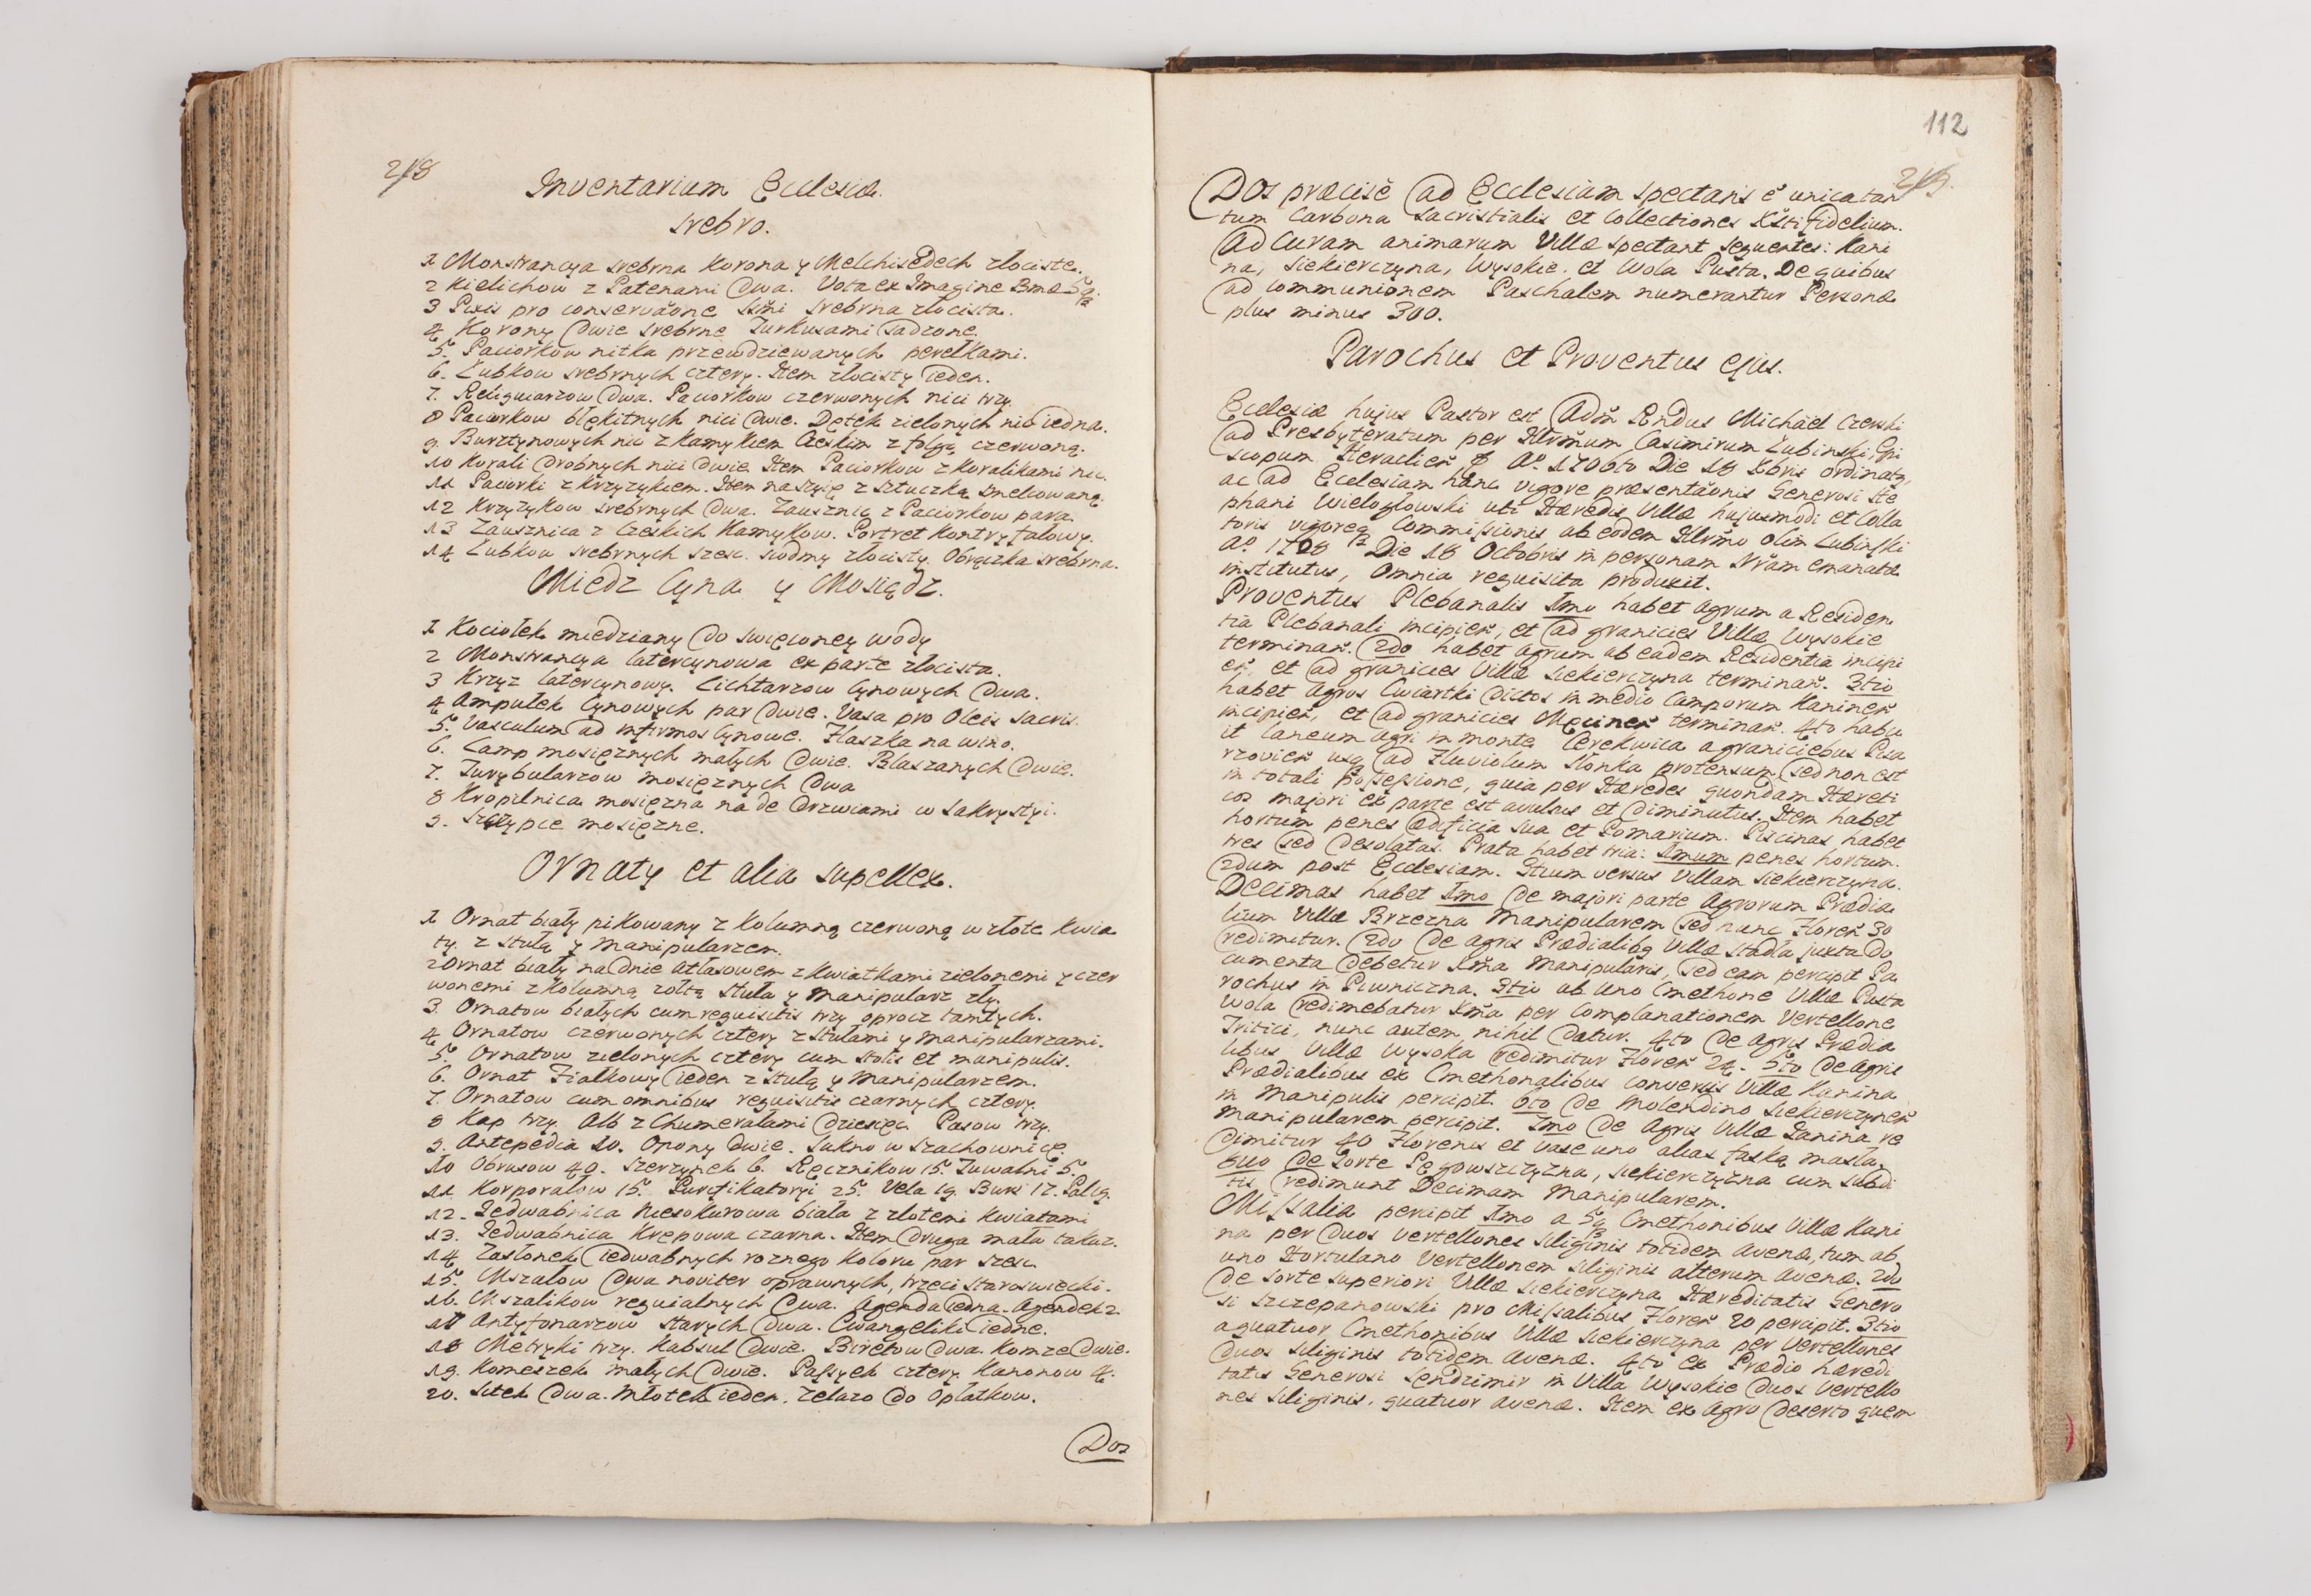 218
Inventarium Ecclesiæ.
srebro.
1 Monstrancya srebrna Korona y Melchisedech złociste.
2 Kielichow z Patenami dwa. Vota ex Imagine Bmæ
3 Pixis pro conservaõne Ssmi srebrna złocista.
4 Korony dwie srebrne Turkusami sadzone.
5. Paciorkow nitka przewdziewanych perełkami.
6. Lubkow srebrnych cztery. Item złocisty ieden.
7. Religuiarzow dwa. Paciorkow czerwonych nici trzy.
8 Paciorkow błękitnych nici dwie. Dętek zielonych nic iedna.
9. Bursztynowych nic z Kamykiem Czeskim z folgą czerwoną.
10 Korali drobnych nici dwie Item Paciorkow z Koralikami nic.
11 Paciorki z Krzyzykiem. Item na szyię z sztuczką smelcowaną.
12 Krzyzykow srebrnych dwa. Zausznic z Paciorkow para.
13 Zausznica z Czeskich Kamykow. Portret Kontryfałowy.
14 Lubkow srebrnych szesc. siodmy złocisty. Obrączka srebrna.
Miedz Cyna y Mosiądz.
1 Kociołek miedziany do swięconey wody
2 Monstrancya latercynowa ex parte złocista.
3 Krzyz latercynowy. Lichtarzow Cynowych dwa.
4 Ampułek Cynowych par dwie. Vasa pro Oleis sacris.
5. Vasculum ad infirmos Cynowe. Flaszka na wino.
6. Lamp mosięznych małych dwie. Blaszanych dwie.
7. Turybularzow mosięznych dwa
8 Kropilnica mosięzna nade drzwiami w Sakrystyi.
9. Szczypce mosięzne.
Ornaty et alia supellex.
1 Ornat biały pikowany z Kolumną czerwoną w złote Kwia
ty. z stułą y Manipularzem.
2 Ornat biały na dnie Atłasowem z Kwiatkami zielonemi y czer
wonemi z Kolumną zołtą stuła y Manipularz zły.
3 Ornatow białych cum reguisitis trzy oprocz tamtych.
4 Ornatow czerwonych cztery z stułami y manipularzami.
5. Ornatow zielonych cztery cum stolis et manipulis.
6. Ornat Fiałkowy ieden z stułą y Manipularzem.
7. Ornatow cum omnibus reguisitis czarnych cztery.
8 Kap trzy. Alb z Chumerałami dziesięc Pasow trzy.
9. Antepedia 10. Opony dwie. Sukno w szachownicę.
10 Obrusow 40. Szerzynek 6. Ręcznikow 15. Tuwalni 5.
11 Korporałow 15. Puryfikatoryi 25. Vela 19. Burs 17. Pal 19.
12. Jedwabnica Niesokurowa biała z złotemi Kwiatami
13. Jedwabnica Krepowa czarna. Item druga mała takaz.
14 Zasłonek iedwabnych roznego Koloru par szesc
15. Mszałow dwa noviter oprawnych, trzeci staroswiecki.
16. Mszalikow reguialnych dwa. Agenda iedna. Agendek 2
17 Antyfonarzow starych dwa. Ewangeliki iedne.
18 Metryki trzy. Kabsul dwie. Biretow dwa. Komze dwie.
19. Komeszek małych dwie. Passyek cztery. Kanonow 4.
20. Sitek dwa. Młotek ieden. Zelazo do Opłatkow.
Dos
112
219.
Dos præcise ad Ecclesiam spectans ẽ unica tan
tum Carbona Sacristialis et Collectiones Xsti fidelium.
Ad Curam animarum Villæ spectant seguentes: Kani
na, Siekierczyna, Wysokie. et Wola Pusta. De guibus
ad communionem Paschalem numerantur Personæ
plus minus 300.
Parochus et Proventus ejus.
Ecclesiæ hujus Pastor est Adm Rndus Michael Czerski
ad Presbyteratum per Illrmum Casimirum Łubinski, Epi
scopum Heraclien Aº 1706to Die 18 Xbris ordinatg,
ac ad Ecclesiam hanc vigore præsentaõnis Generosi Ste
phani Wielogłowski uti Hæredis Villæ hujusmodi et Colla
toris vigoreg Commissionis ab eodem Illrmo olim Łubinski
Aº 1708 Die 18 Octobris in personam Nram emanatæ
institutus, Omnia reguisita produxit.
Proventus Plebanalis 1mo habet Agrum a Residen
tia Plebanali incipien, et ad granicies Villæ Wysokie
terminan. 2do habet Agrum ab eadem Residentia incipi
en et ad granicies Villæ Siekierczyna terminan. 3tio
habet Agros Cwiartki dictos in medio Camporum Kaninen
incipien, et ad granicies Mecinen terminan. 4to habu
it laneum agri in monte Cerekwica a graniciebus Pisa
rzovien usg ad Fluviolum Słonka protensum, sed non est
in totali possessione, guia per Hæredes guondam Hæreti
cos majori ex parte est avulsus et diminutus. Item habet
hortum penes ædificia sua et Pomarium. Piscinas habet
tres sed desolatas. Prata habet tria: 1mum penes hortum.
2dum post Ecclesiam. 3tium versus Villam Siekierczyna.
Decimas habet 1mo de majori parte Agrorum Prædia
lium Villæ Brzezna Manipularem sed nunc Floren 30
redimitur. 2do de agris Prædialibg Villæ Stadła juxta Do
cumenta debetur Xma Manipularis, sed eam percipit Pa
rochus in Piwniczna. 3tio ab uno Cmethone Villæ Pusta
Wola redimebatur Xma per Complanationem Vertellone
Tritici, nunc autem nihil datur. 4to de Agris Prædia
libus Villæ Wysoka redimitur Floren 24. 5to de Agris
Prædialibus ex Cmethonalibus conversis Villæ Kanina
in Manipulis percipit. 6to de Molendino Siekierczynen
Manipularem percipit. 7mo de Agris Villæ Janina re
dimitur 40 Florenis et vase uno alias faską masła.
8vo de Sorte Pęgowszczyzna, Siekierczyzna cum subdi
tis redimunt Decimam Manipularem.
Missalia percipit 1mo a Cmethonibus Villæ Kani
na per duos Vertellones siliginis totidem avenæ, tum ab
uno Hortulano Vertellonem siliginis alterum avenæ. 2do
de sorte superiori Villæ Siekierczyna Hæreditatis Genero
si Szczepanowski pro Missalibus Floren 20 percipit. 3tio
a guatuor Cmethonibus Villæ Siekierczyna per Vertellones
duos siliginis totidem avenæ. 4to ex Prædio hæredi
tatis Generosi Sendzimir in Villa Wysokie duos Vertello
nes siliginis, guatuor avenæ. Item ex Agro deserto guem